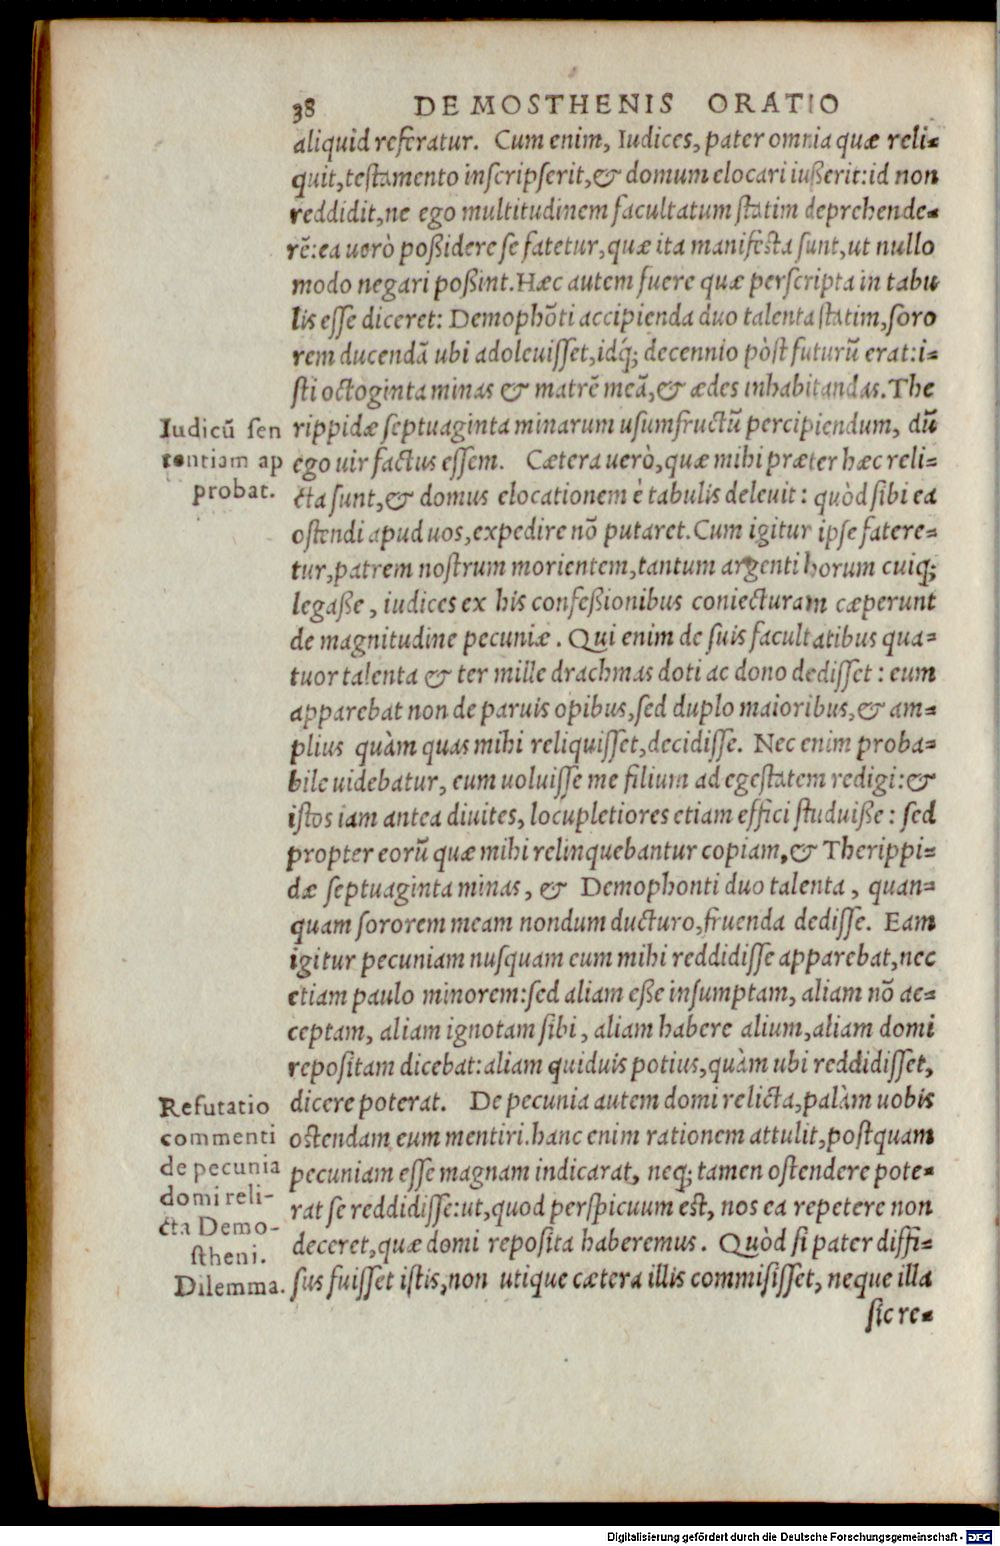 38 DEMOSTHENIS ORATIO
aliquid referatur. Cum enim, Iudices, pater omnia quæ reli-
quit, testamento inscripserit, & domum elocari iußerit: id non
reddidit, ne ego multitudinem facultatum statim deprehende-
rē: ea uerò poßidere se fatetur, quæ ita manifesta sunt, ut nullo
modo negari poßint. Hæc autem fuere quæ perscripta in tabu
lis esse diceret: Demophōti accipienda duo talenta statim, soro
rem ducendā ubi adoleuisset, idq́; decennio pòst futurū erat: i-
sti octoginta minas & matrē meā, & ædes inhabitandas. The
Iudicū sen
rippidæ septuaginta minarum usumfructū percipiendum, dū
tentiam ap
ego uir factus essem. Cætera uerò, quæ mihi præter hæc reli-
probat.
cta sunt, & domus elocationem è tabulis deleuit: quòd sibi ea
ostendi apud uos, expedire nō putaret. Cum igitur ipse fatere-
tur, patrem nostrum morientem, tantum argenti horum cuiq;
legaße, iudices ex his confeßionibus coniecturam cæperunt
de magnitudine pecuniæ. Qui enim de suis facultatibus qua-
tuor talenta & ter mille drachmas doti ac dono dedisset: eum
apparebat non de paruis opibus, sed duplo maioribus, & am-
plius quàm quas mihi reliquisset, decidisse. Nec enim proba-
bile uidebatur, eum uoluisse me filium ad egestatem redigi: &
istos iam antea diuites, locupletiores etiam effici studuiße: sed
propter eorū quæ mihi relinquebantur copiam, & Therippi-
dæ septuaginta minas, & Demophonti duo talenta, quan-
quam sororem meam nondum ducturo, fruenda dedisse. Eam
igitur pecuniam nusquam eum mihi reddidisse apparebat, nec
etiam paulo minorem: sed aliam eße insumptam, aliam nō ac-
ceptam, aliam ignotam sibi, aliam habere alium, aliam domi
repositam dicebat: aliam quiduis potius, quàm ubi reddidisset,
Refutatio
dicere poterat. De pecunia autem domi relicta, palàm uobis
commenti
ostendam eum mentiri. hanc enim rationem attulit, postquam
de pecunia
pecuniam esse magnam indicarat, neq; tamen ostendere pote-
domi reli-
rat se reddidisse: ut, quod perspicuum est, nos ea repetere non
cta Demo-
deceret, quæ domi reposita haberemus. Quòd si pater diffi-
stheni.
Dilemma.
sus fuisset istis, non utique cætera illis commisisset, neque illa
sic re-
Digitalisierung gefördert durch die Deutsche Forschungsgemeinschaft - DFG